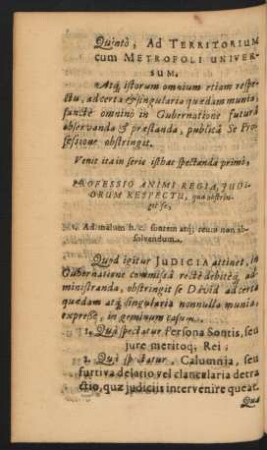 Quintò, Ad TERRITORIUM
cum METROPOLI UNIVER-
SUM.
Atq; istorum omnium etiam respe-
ctu, ad certa & singularia quædam munia,
sanctè omninò in Gubernatione futurâ
observanda & præstanda, publicâ Se Pro-
fessione obstringit.
Venit ita in serie isthâc spectanda primò,
PROFESSIO ANIMI REGIA, JUDI-
CIORUM RESPECTU, quâ obstrin-
git se,
Ad malum h. e. sontem atq; reum non ab-
solvendum.
Quod igitur JUDICIA attinet, in
Gubernatione commissâ rectè debitèq; ad-
ministranda, obstringit se David ad certa
quædam atq; singularia nonnulla munia,
expressè, in geminum casum.
1. Quà spectatur Persona Sontis, seu
jure meritoq; Rei;
2. Quà spectatur, Calumnia, seu
furtiva delatio vel clancularia detra-
ctio, quæ judiciis intervenire queat.
Quâ